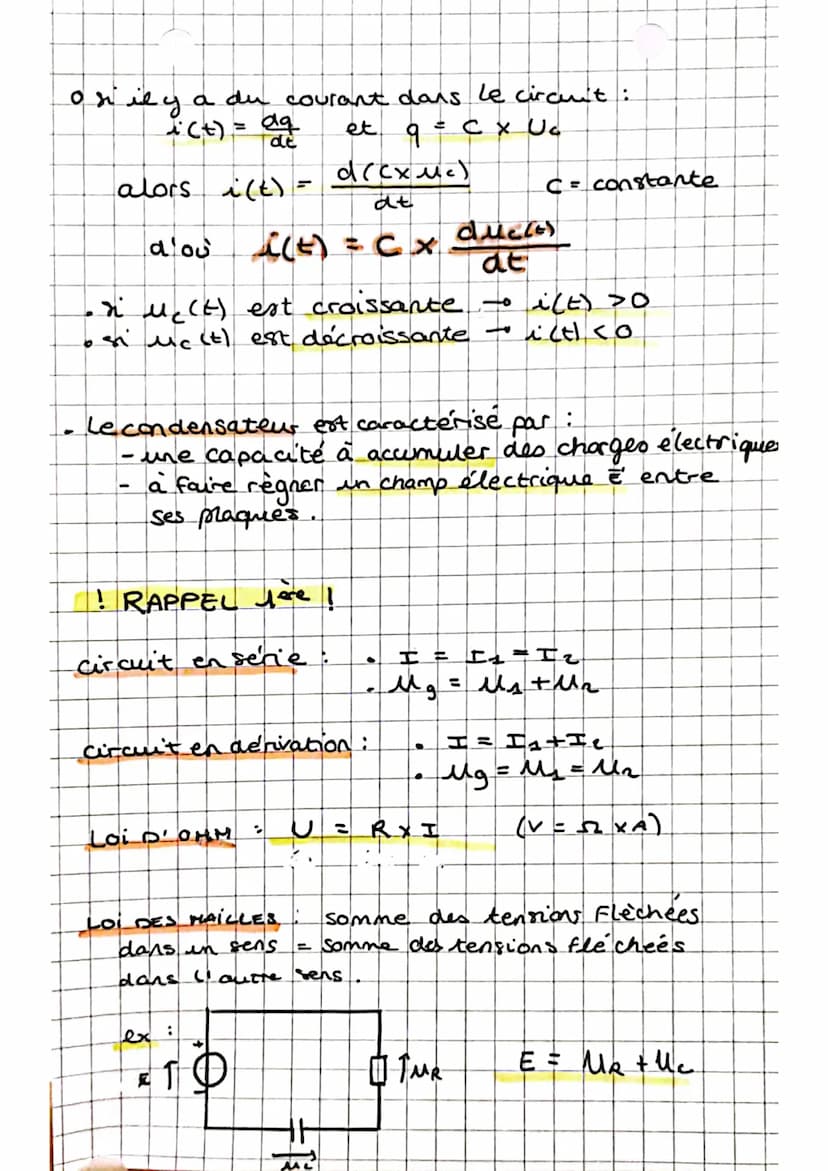 o si il y a du courant dans le circuit :
i(t) = dq/dt et q = C x Uc
alors i(t) = d(C x uc)/dt C = constante
d'où i(t) = C x duc(t)/dt
• si uc(t) est croissante → i(t) > 0
• si uc(t) est décroissante → i(t) < 0
- Le condensateur est caractérisé par :
- une capacité à accumuler des charges électriques
- à faire règner un champ électrique E entre
ses plaques.
! RAPPEL 1ère !
circuit en série : • I = I1 = I2
• Ug = U1 + U2
circuit en dérivation : • I = I1 + I2
• Ug = U1 = U2
LOI D'OHM : U = R x I (V = Ω x A)
LOI DES MAILLES : somme des tensions Flèchées
dans un sens = somme des tensions fléchées
dans l'autre sens.
ex :
+
E ↑ ↑ UR E = UR + Uc
uc